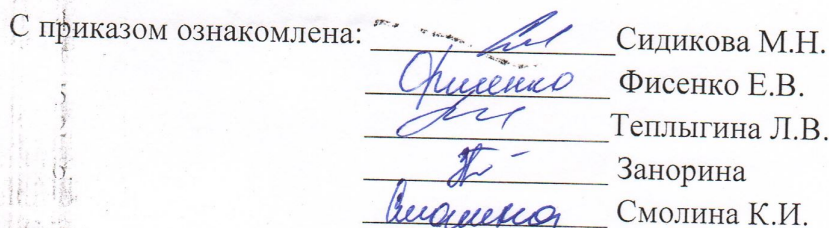 С приказом ознакомлена: Сидикова М.Н.
Фисенко Фисенко Е.В.
Теплыгина Л.В.
Занорина
Смолина Смолина К.И.